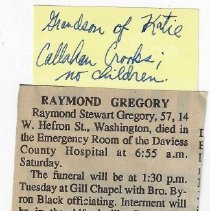 Grandson of Katie
Callahan Crooks;
no children.
RAYMOND GREGORY
Raymond Stewart Gregory, 57, 14
W. Hefron St., Washington, died in
the Emergency Room of the Daviess
County Hospital at 6:55 a.m.
Saturday.
The funeral will be at 1:30 p.m.
Tuesday at Gill Chapel with Bro. By-
ron Black officiating. Interment will
be in the